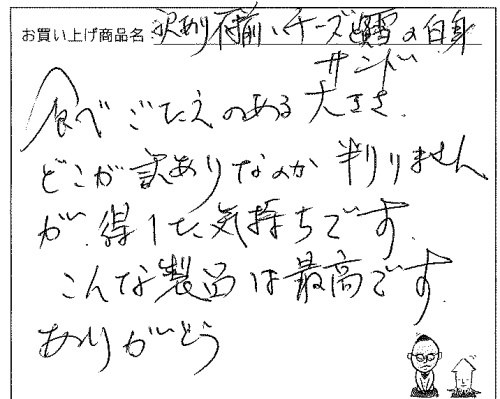 お買い上げ商品名 訳あり不揃いチーズと鱈の白身
サンド
食べごたえのある大きさ
どこが訳ありなのか判りません
が、得した気持ちです。
こんな製品は最高です。
ありがとう